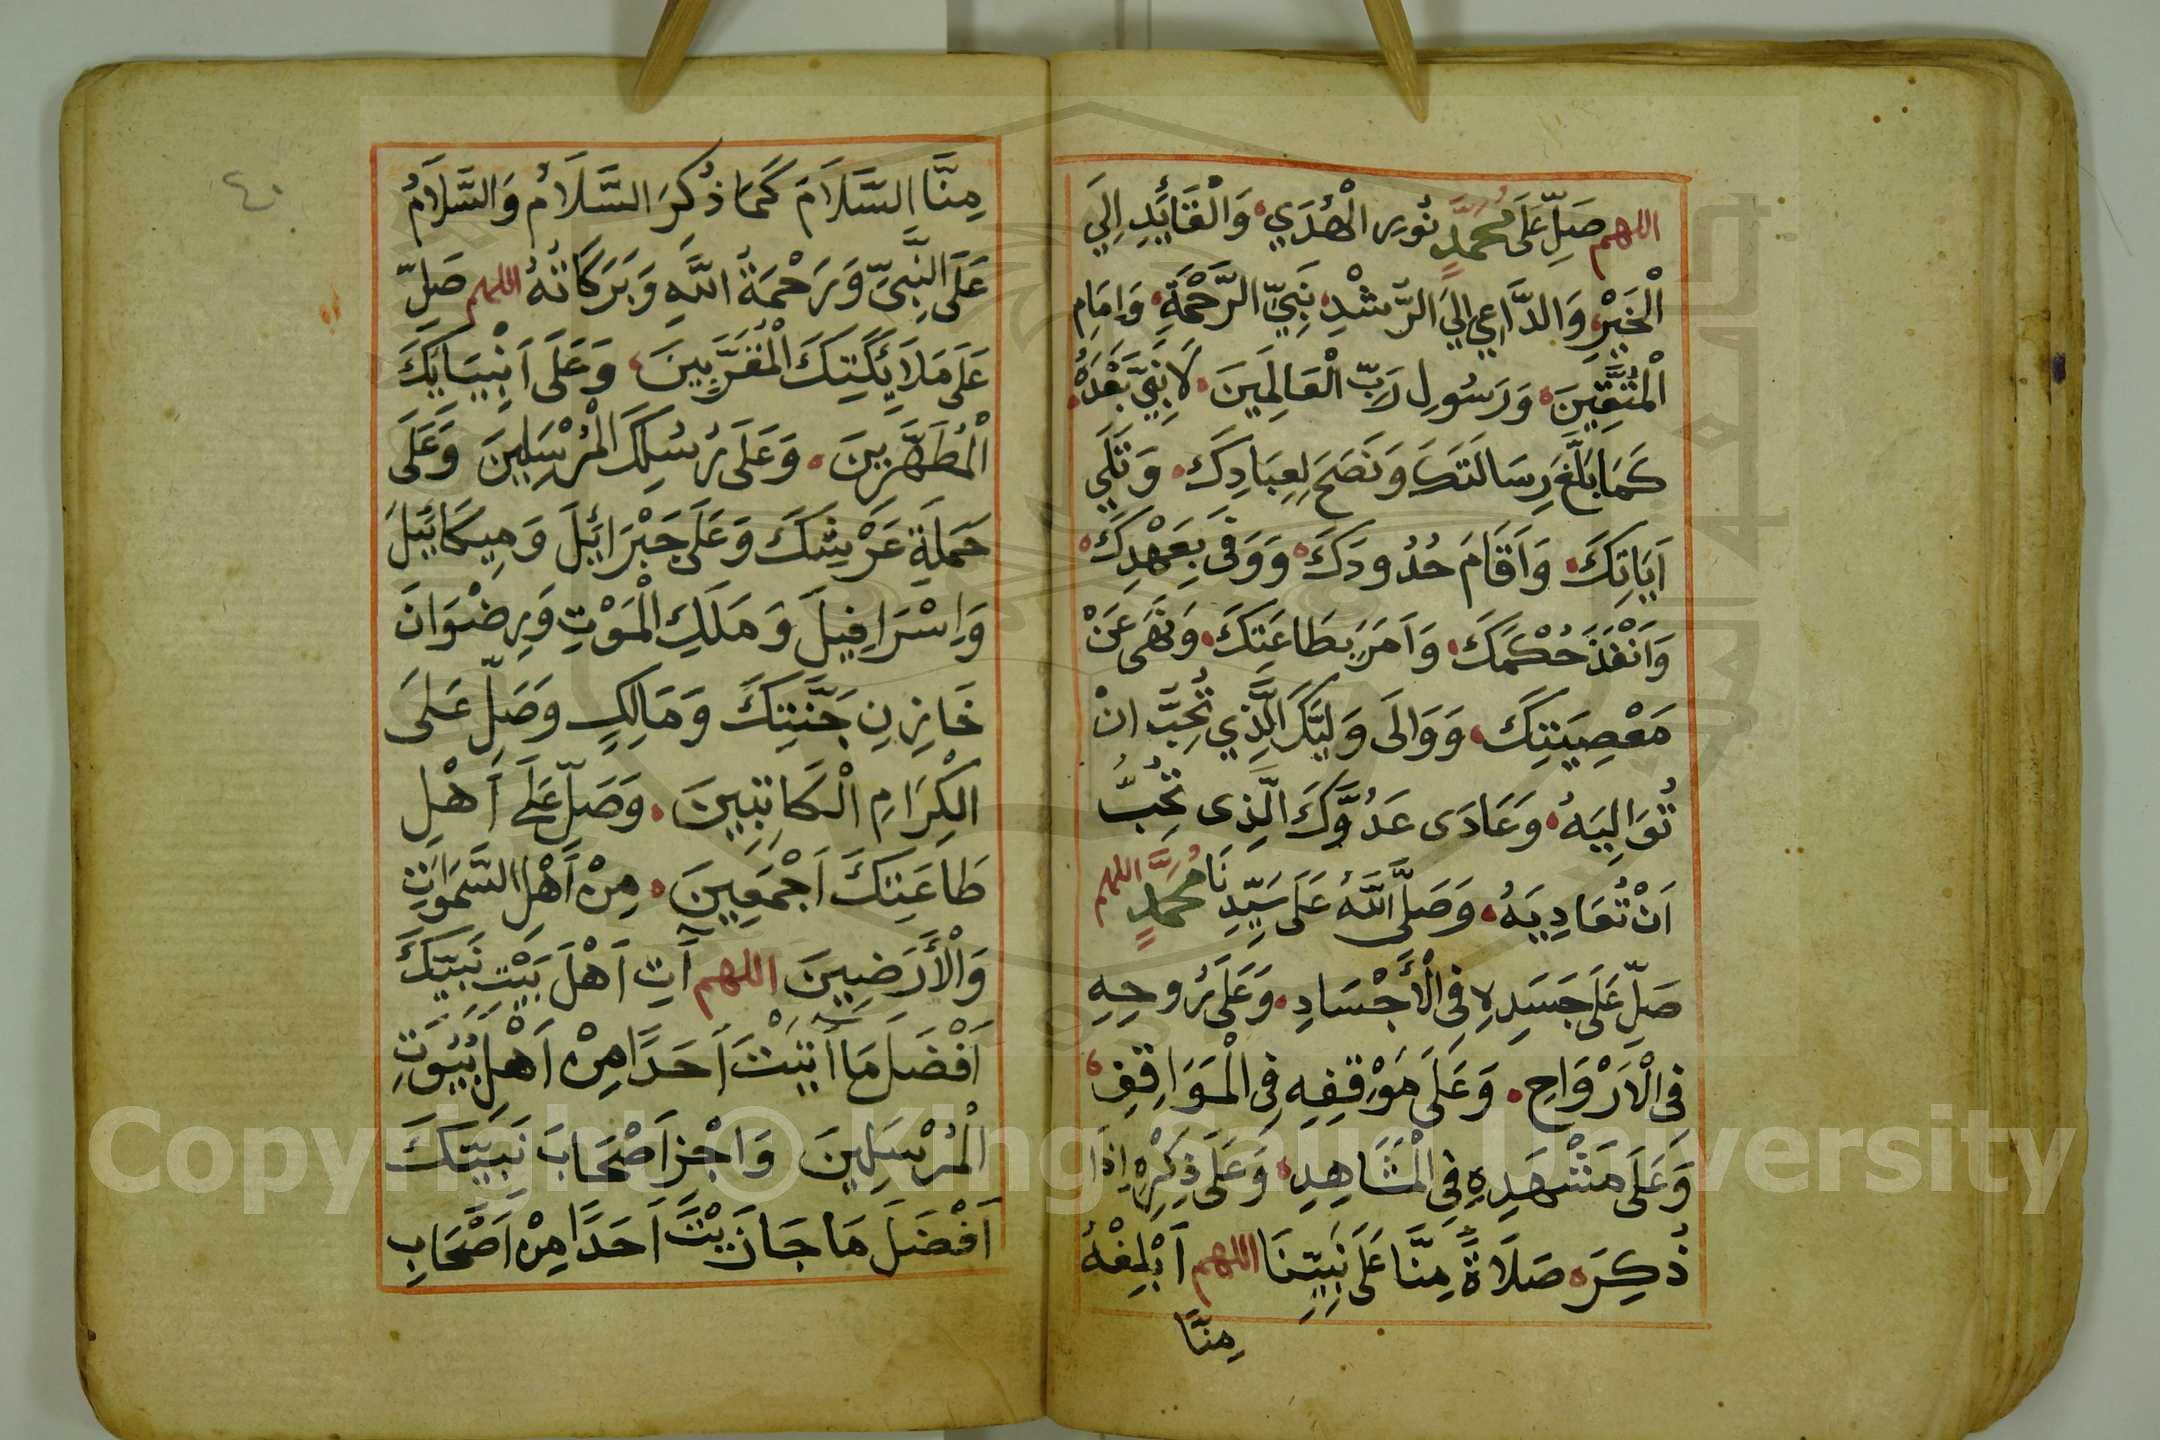 اللهم صَلِّ عَلَى مُحَمَّدٍ نُورِ الْهُدَي وَالْقَائِدِ اِلَي
الْخَيْرِ وَالدَّاعِي اِلَي الرُّشْدِ نَبِيِّ الرَّحْمَةِ وَاِمَامِ
الْمُتَّقِينَ وَرَسُولِ رَبِّ الْعَالَمِينَ لَا نَبِيَّ بَعْدَهُ
كَمَا بَلَّغَ رِسَالَتَكَ وَنَصَحَ لِعِبَادِكَ وَتَلَي
اَيَاتِكَ وَاَقَامَ حُدُودَكَ وَوَفَى بِعَهْدِكَ
وَاَنْفَذَ حُكْمَكَ وَاَمَرَ بِطَاعَتِكَ وَنَهَى عَنْ
مَعْصِيَتِكَ وَوَالَى وَلِيَّكَ الَّذِي تُحِبُّ انْ
تُوَالِيَهُ وَعَادَى عَدُوَّكَ الَّذِى تُحِبُّ
اَنْ تُعَادِيَهُ وَصَلَّى اللَّهُ عَلَى سَيِّدِنَا مُحَمَّدٍ اللهم
صَلِّ عَلَى جَسَدِهِ فِى الْأَجْسَادِ وَعَلَى رُوحِهِ
فِى الْاَرْوَاحِ وَعَلَى مَوْقِفِهِ فِى الْمَوَاقِفِ
وَعَلَى مَشْهَدِهِ فِى الْمَشَاهِدِ وَعَلَى ذِكْرِهِ اِذَا
ذُكِرَ صَلَاةً مِنَّا عَلَى نَبِيِّنَا اللهم اَبْلِغْهُ
مِنَّا
٤٠
مِنَّا السَّلَامَ كَمَا ذُكِرَ السَّلَامُ وَالسَّلَامُ
عَلَى النَّبِىِّ وَرَحْمَةُ اللَّهِ وَبَرَكَاتُهُ اللهم صَلِّ
عَلَى مَلَائِكَتِكَ الْمُقَرَّبِينَ وَعَلَى اَنْبِيَائِكَ
الْمُطَهَّرِينَ وَعَلَى رُسُلِكَ الْمُرْسَلِينَ وَعَلَى
حَمَلَةِ عَرْشِكَ وَعَلَى جَبْرَائِلَ وَمِيكَائِلَ
وَاِسْرَافِيلَ وَمَلَكِ الْمَوْتِ وَرِضْوَانَ
خَازِنِ جَنَّتِكَ وَمَالِكٍ وَصَلِّ عَلَى
الْكِرَامِ الْكَاتِبِينَ وَصَلِّ عَلَى اَهْلِ
طَاعَتِكَ اَجْمَعِينَ مِنْ اَهْلِ السَّمَوَاتِ
وَالْأَرَضِينَ اللهم آتِ اَهْلَ بَيْتِ نَبِيِّكَ
اَفْضَلَ مَا أَتَيْتَ اَحَدًا مِنْ اَهْلِ بُيُوتِ
الْمُرْسَلِينَ وَاجْزِ اَصْحَابَ نَبِيِّكَ
اَفْضَلَ مَا جَازَيْتَ اَحَدًا مِنْ اَصْحَابِ
Copyright © King Saud University